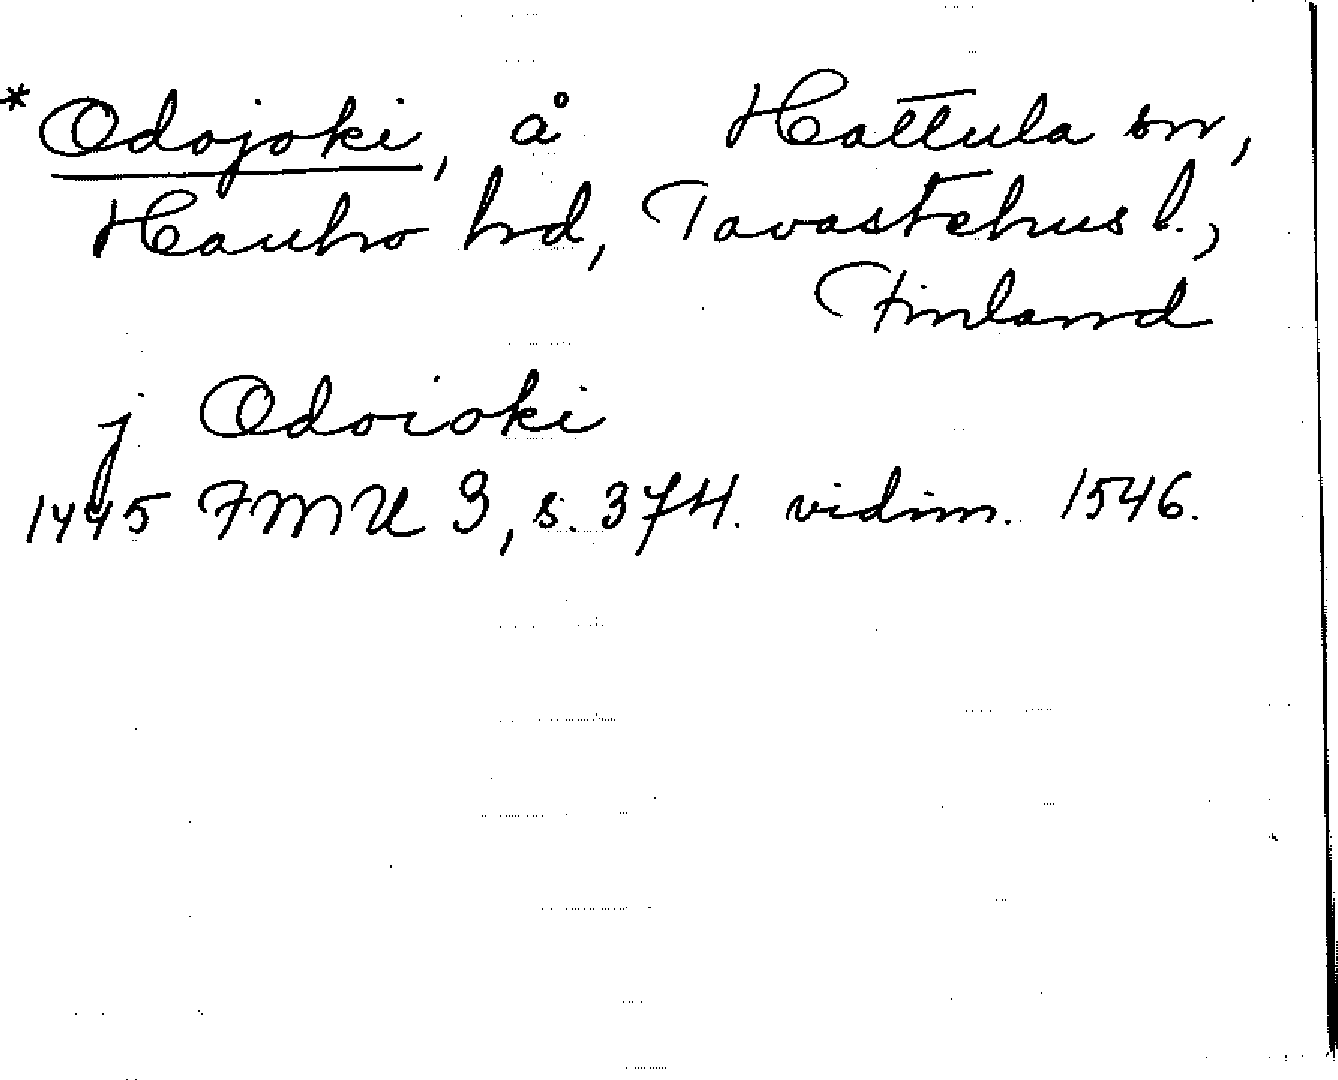 *Odojoki, å Hattula sn,
Hauho hrd, Tavastehus l.,
Finland
j Odoioki
1445 FMU 3, s. 374. vidim. 1546.